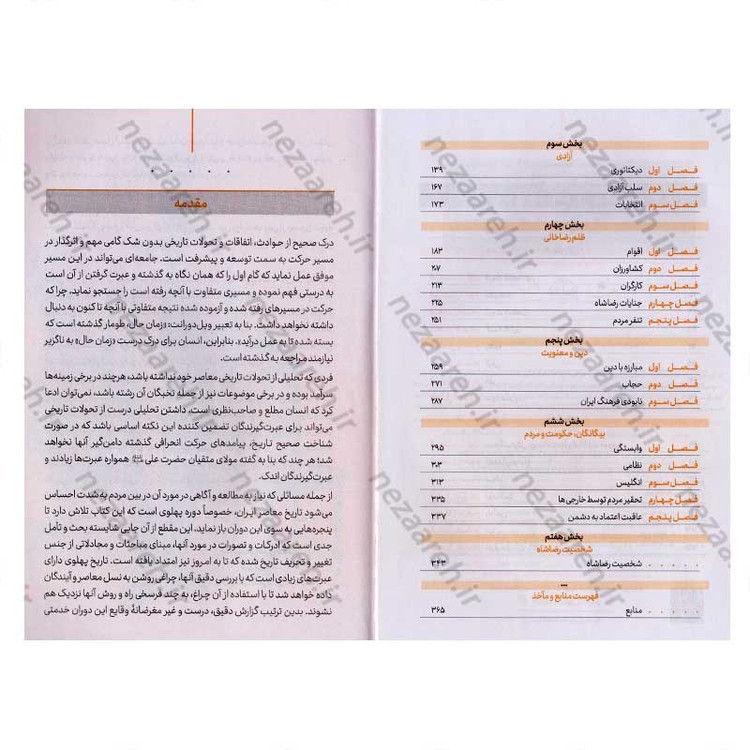 بخش سوم
آزادی
فصل اول دیکتاتوری ۱۳۹
فصل دوم سلب آزادی ۱۶۷
فصل سوم انتخابات ۱۷۳
بخش چهارم
ظلم رضاخانی
فصل اول اقوام ۱۸۳
فصل دوم کشاورزان ۲۰۷
فصل سوم کارگران ۲۱۳
فصل چهارم جنایات رضاشاه ۲۲۵
فصل پنجم تنفر مردم ۲۵۱
بخش پنجم
دین و معنویت
فصل اول مبارزه با دین ۲۵۹
فصل دوم حجاب ۲۷۱
فصل سوم نابودی فرهنگ ایران ۲۸۷
بخش ششم
بیگانگان، حکومت و مردم
فصل اول وابستگی ۲۹۵
فصل دوم نظامی ۳۰۳
فصل سوم انگلیس ۳۱۳
فصل چهارم تحقیر مردم توسط خارجی‌ها ۳۳۵
فصل پنجم عاقبت اعتماد به دشمن ۳۳۷
بخش هفتم
شخصیت رضاشاه
. . . . . شخصیت رضاشاه ۳۴۳
...
فهرست منابع و مآخذ
. . . . . منابع ۳۶۵
مقدمه
درک صحیح از حوادث، اتفاقات و تحولات تاریخی بدون شک گامی مهم و اثرگذار در
مسیر حرکت به سمت توسعه و پیشرفت است. جامعه‌ای می‌تواند در این مسیر
موفق عمل نماید که گام اول را که همان نگاه به گذشته و عبرت گرفتن از آن است
به درستی فهم نموده و مسیری متفاوت با آنچه رفته است را جستجو نماید. چرا که
حرکت در مسیرهای رفته شده و آزموده شده نتیجه متفاوتی با آنچه تا کنون به دنبال
داشته نخواهد داشت. بنا به تعبیر ویل‌دورانت: «زمان حال، طومار گذشته است که
بسته شده تا به عمل درآید». بنابراین، انسان برای درک درست «زمان حال» به ناگزیر
نیازمند مراجعه به گذشته است.
فردی که تحلیلی از تحولات تاریخی معاصر خود نداشته باشد، هرچند در برخی زمینه‌ها
سرآمد بوده و در برخی موضوعات نیز از جمله نخبگان آن رشته باشد، نمی‌توان ادعا
کرد که انسان مطلع و صاحب‌نظری است. داشتن تحلیلی درست از تحولات تاریخی
می‌تواند برای عبرت‌گیرندگان تضمین کننده این نکته اساسی باشد که در صورت
شناخت صحیح تاریخ، پیامدهای حرکت انحرافی گذشته دامن‌گیر آنها نخواهد
شد؛ هر چند که بنا به گفته مولای متقیان حضرت علی همواره عبرت‌ها زیادند و
عبرت‌گیرندگان اندک.
از جمله مسائلی که نیاز به مطالعه و آگاهی در مورد آن در بین مردم به شدت احساس
می‌شود تاریخ معاصر ایران، خصوصاً دوره پهلوی است که این کتاب تلاش دارد تا
پنجره‌هایی به سوی این دوران باز نماید. این مقطع از آن جایی شایسته بحث و تأمل
جدی است که ادراکات و تصورات در مورد آنها، مبنای مباحثات و مجادلاتی از جنس
تغییر و تحریف تاریخ شده که تا به امروز نیز امتداد یافته است. تاریخ پهلوی دارای
عبرت‌های زیادی است که با بررسی دقیق آنها، چراغی روشن به نسل معاصر و آیندگان
داده خواهد شد تا با استفاده از آن چراغ، به چند فرسخی راه و روش آنها نزدیک هم
نشوند. بدین ترتیب گزارش دقیق، درست و غیر مغرضانهٔ وقایع این دوران خدمتی
nezaareh.ir